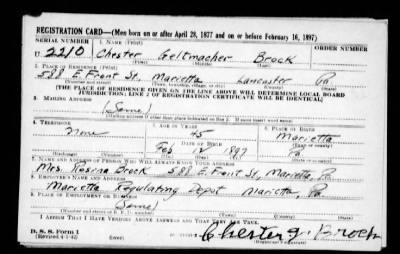 REGISTRATION CARD—(Men born on or after April 28, 1877 and on or before February 16, 1897)
SERIAL NUMBER 1. NAME (Print) ORDER NUMBER
U 2210 Chester Geltmacher Brock
(First) (Middle) (Last)
2. PLACE OF RESIDENCE (Print)
588 E. Front St, Marietta Lancaster Pa
(Number and street) (Town, township, village, or city) (County) (State)
[THE PLACE OF RESIDENCE GIVEN ON THE LINE ABOVE WILL DETERMINE LOCAL BOARD
JURISDICTION; LINE 2 OF REGISTRATION CERTIFICATE WILL BE IDENTICAL]
3. MAILING ADDRESS
(Same)
[Mailing address if other than place indicated on line 2. If same insert word same]
4. TELEPHONE 5. AGE IN YEARS 6. PLACE OF BIRTH
None 45 Marietta
DATE OF BIRTH (Town or county)
Feb 1897 Pa
7. NAME AND ADDRESS OF PERSON WHO WILL ALWAYS KNOW YOUR ADDRESS
Mrs. Rosina Brock 588 E. Front St, Marietta, Pa.
8. EMPLOYER'S NAME AND ADDRESS
Marietta Regulating Depot Marietta, Pa.
9. PLACE OF EMPLOYMENT OR BUSINESS
(Same)
(Number and street or R. F. D. number) (Town) (County) (State)
I AFFIRM THAT I HAVE VERIFIED ABOVE ANSWERS AND THAT THEY ARE TRUE.
D. S. S. Form 1
(Revised 4-1-42)
Chester G. Brock
(Registrant's signature)